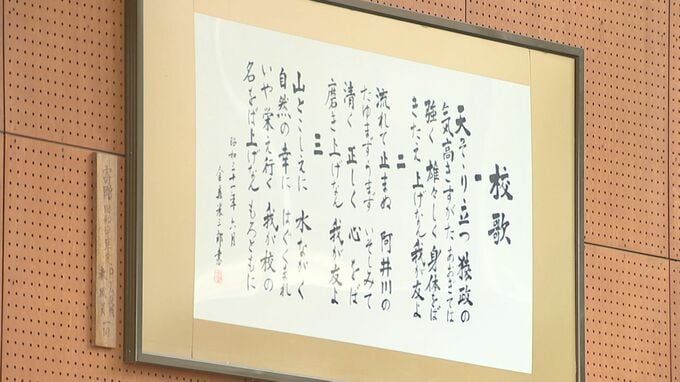 校歌
一
天そゝり立つ 猿政の
気高きすがた あおぎては
強く 雄々しく 身体をば
きたえ上げなん 我が友よ
二
流れて止まぬ 阿井川の
たゆまずうまず いそしみて
清く 正しく 心をば
磨き上げなん 我が友よ
三
山とこしえに 水ながく
自然の幸に はぐくまれ
いや栄え行く 我が校の
名をば上げなん もろともに
昭和三十一年六月
寄贈